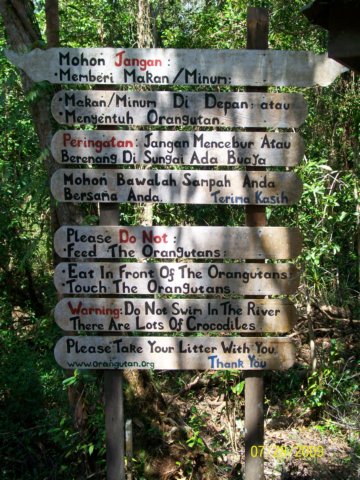 Mohon Jangan :
·Memberi Makan/Minum:
·Makan/Minum Di Depan: atau
·Menyentuh Orangutan.
Peringatan: Jangan Mencebur Atau
Berenang Di Sungai Ada Buaya
Mohon Bawalah Sampah Anda
Bersama Anda. Terima Kasih
Please Do Not :
·Feed The Orangutans:
·Eat In Front Of The Orangutans:
·Touch The Orangutans.
Warning: Do Not Swim In The River
There Are Lots Of Crocodiles
Please Take Your Litter With You.
www.Orangutan.Org Thank You